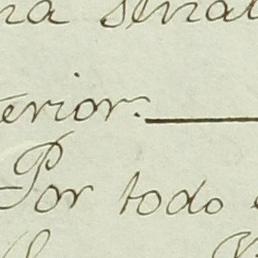 na señal
terior.
Por todo